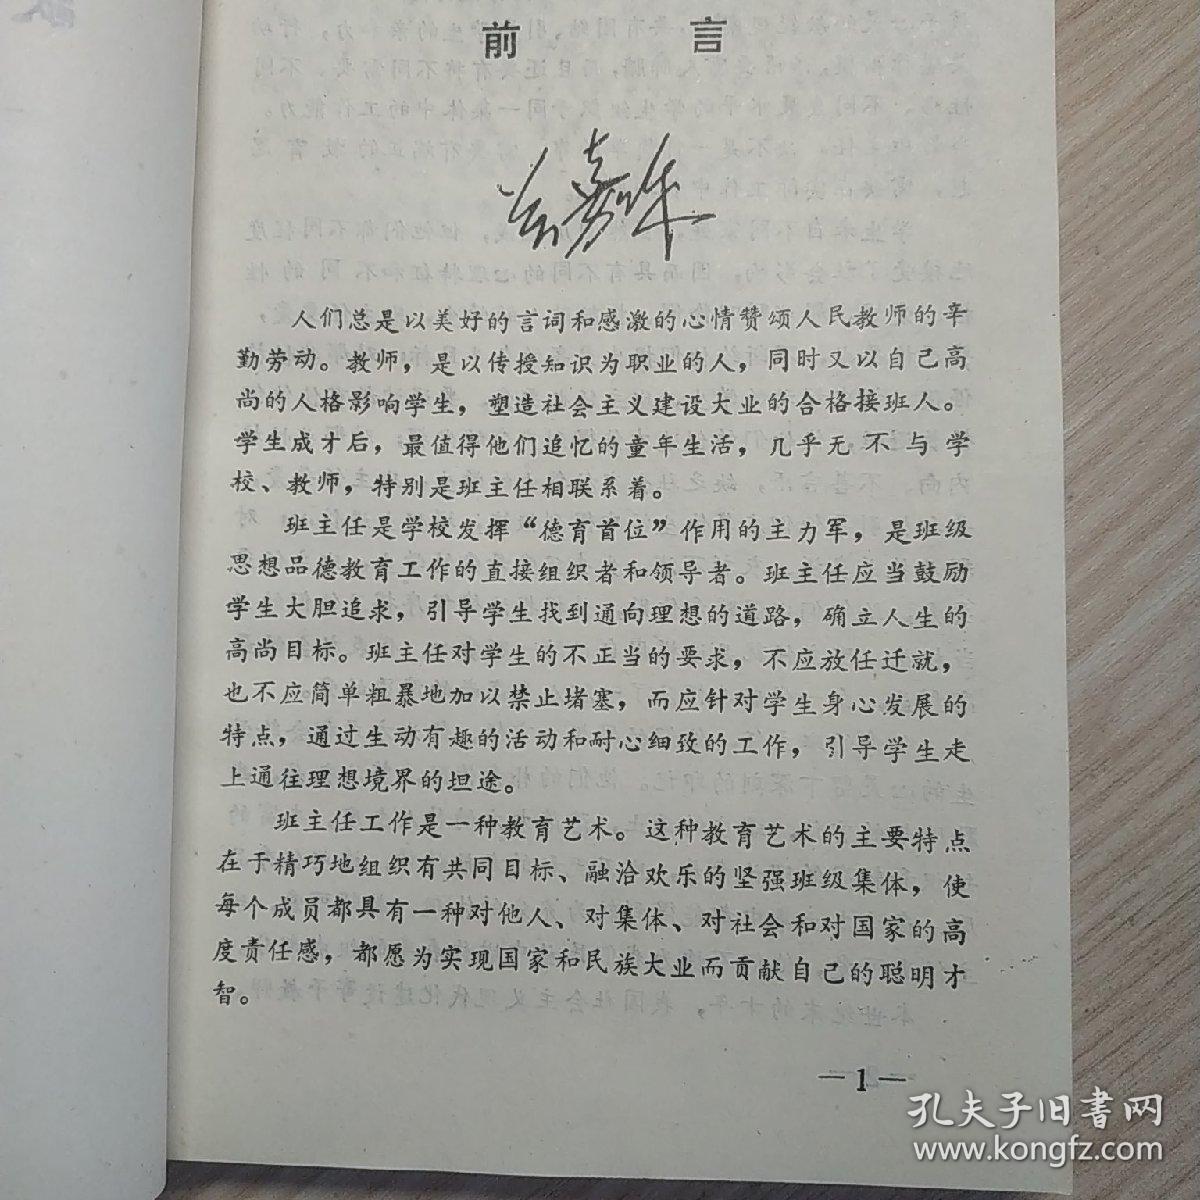 前言
人们总是以美好的言词和感激的心情赞颂人民教师的辛
勤劳动。教师，是以传授知识为职业的人，同时又以自己高
尚的人格影响学生，塑造社会主义建设大业的合格接班人。
学生成才后，最值得他们追忆的童年生活，几乎无不与学
校、教师，特别是班主任相联系着。
班主任是学校发挥“德育首位”作用的主力军，是班级
思想品德教育工作的直接组织者和领导者。班主任应当鼓励
学生大胆追求，引导学生找到通向理想的道路，确立人生的
高尚目标。班主任对学生的不正当的要求，不应放任迁就，
也不应简单粗暴地加以禁止堵塞，而应针对学生身心发展的
特点，通过生动有趣的活动和耐心细致的工作，引导学生走
上通往理想境界的坦途。
班主任工作是一种教育艺术。这种教育艺术的主要特点
在于精巧地组织有共同目标、融洽欢乐的坚强班级集体，使
每个成员都具有一种对他人、对集体、对社会和对国家的高
度责任感，都愿为实现国家和民族大业而贡献自己的聪明才
智。
—1—
孔夫子旧书网
www.kongfz.com